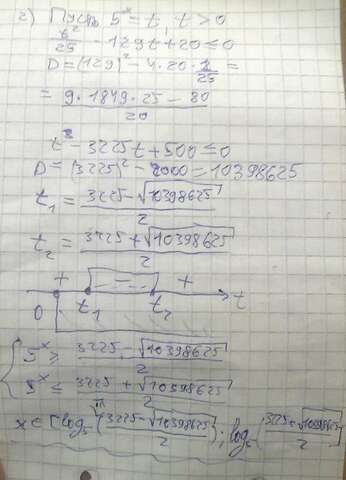 2) Пусть 5^x = t, t > 0
t²/25 - 129t + 20 ≤ 0
D = (129)² - 4·20·1/25 =
= (9·1849·25 - 80)/20
t² - 3225t + 500 ≤ 0
D = (3225)² - 2000 = 10398625
t₁ = (3225 - √10398625)/2
t₂ = (3225 + √10398625)/2
+ - +
0 t₁ t₂ t
{ 5^x ≥ (3225 - √10398625)/2
5^x ≤ (3225 + √10398625)/2
x ∈ [log₅((3225 - √10398625)/2); log₅((3225 + √10398625)/2)